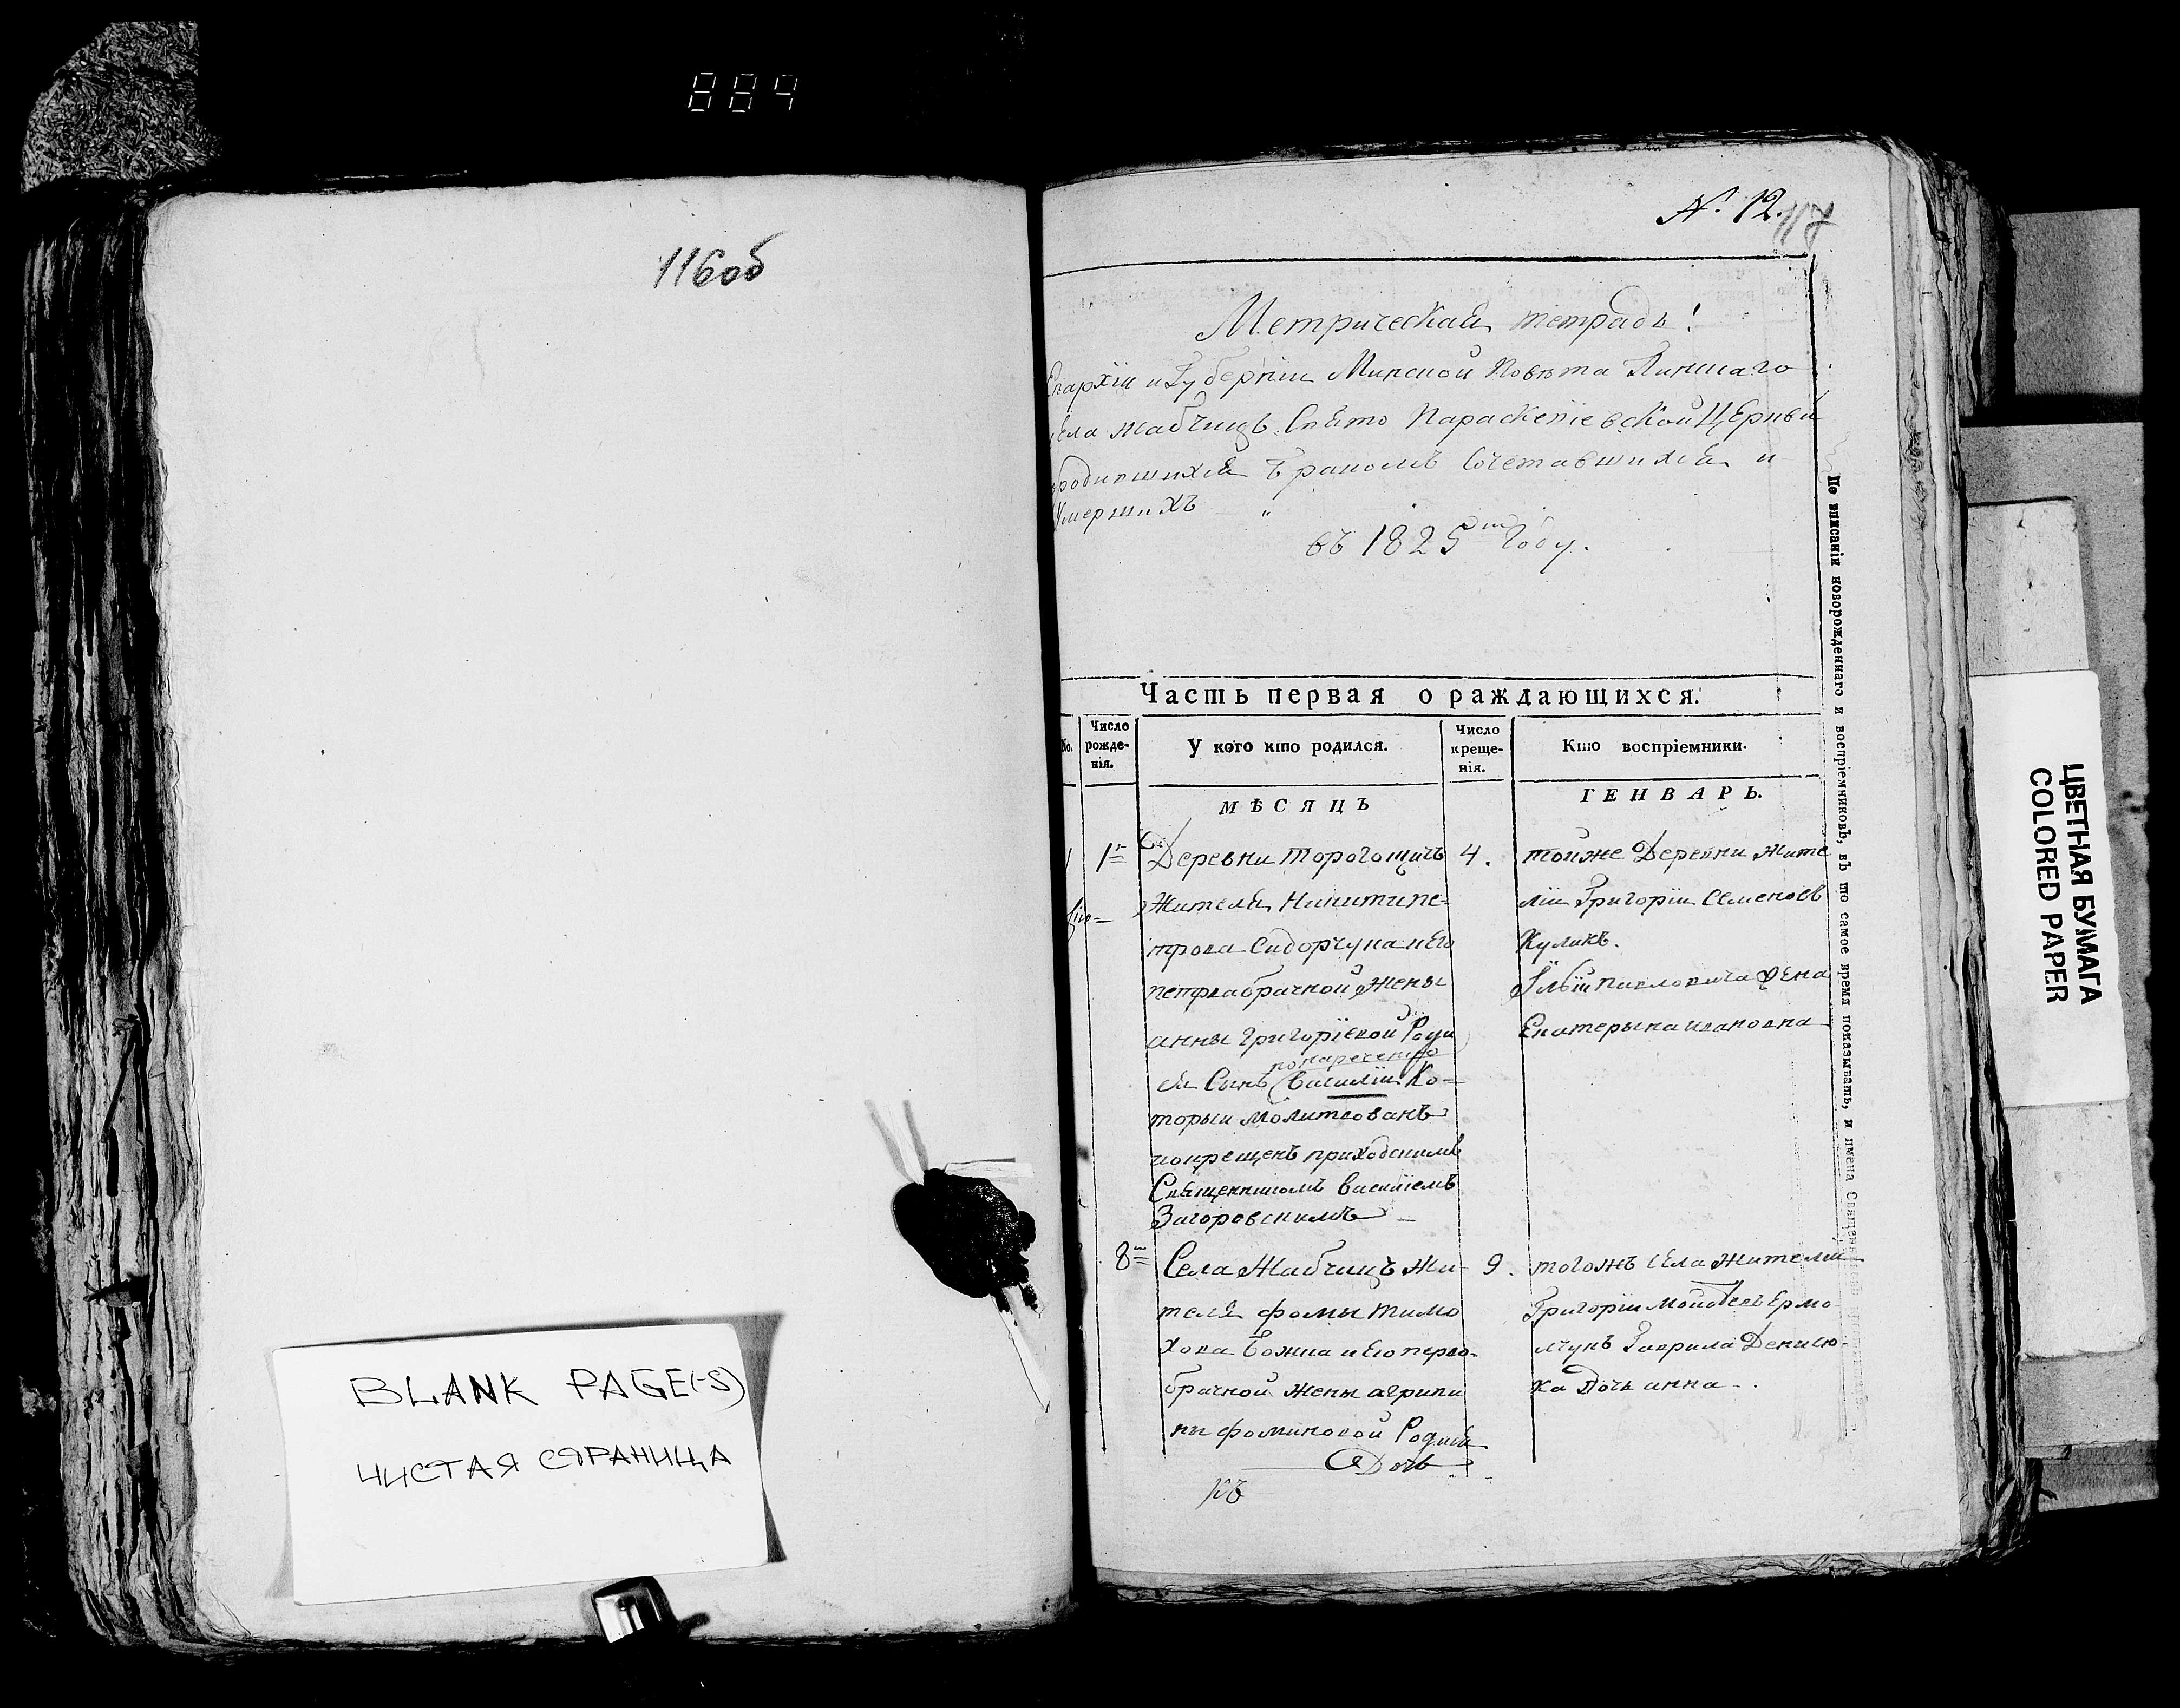 884
116об
BLANK PAGE(-S)
ЧИСТАЯ СТРАНИЦА
№ 12.
117
Метрическая тетрадь!
Епархіи и Губерніи Минской Повѣта Пинскаго
Села Жабчицъ Свято Параскевіевской Церкви
о родившихся Бракомъ Сочетавшихся и
Умершихъ "
въ 1825 Году.
Часть первая о раждающихся.
No.
Число рожде-нія.
У кого кто родился.
Число креще-нія.
Кто воспріемники.
МѢСЯЦЪ
ГЕНВАРЬ.
1 1
Деревни торогощичъ
Жителя Никити пе-
трова Сидорчука и его
первабрачной Жены
анны Григорїевой Роди
понареченїю
ся Сынъ Василїи Ко-
торыи молитвованъ
и окрещенъ приходскимъ
Священникомъ Василїемъ
Загоровскимъ
4.
тойже Деревни жите
лїи Григорїи Семеновъ
Куликъ.
Павловича Жена
Екатерына ивановна
8
Села Жабчицъ Жи-
теля фомы тимо
хова Божка и Его перво-
брачной жены агрипи
ны фоминовой Родися
Дочь
9.
тогожъ Села Жители
Григорїи Ермо
лчукъ Гаврила Денисю-
ка Дочь анна.
По вписаніи новорожденнаго и воспріемниковъ, въ то самое время показывать, и имена
ЦВЕТНАЯ БУМАГА
COLORED PAPER